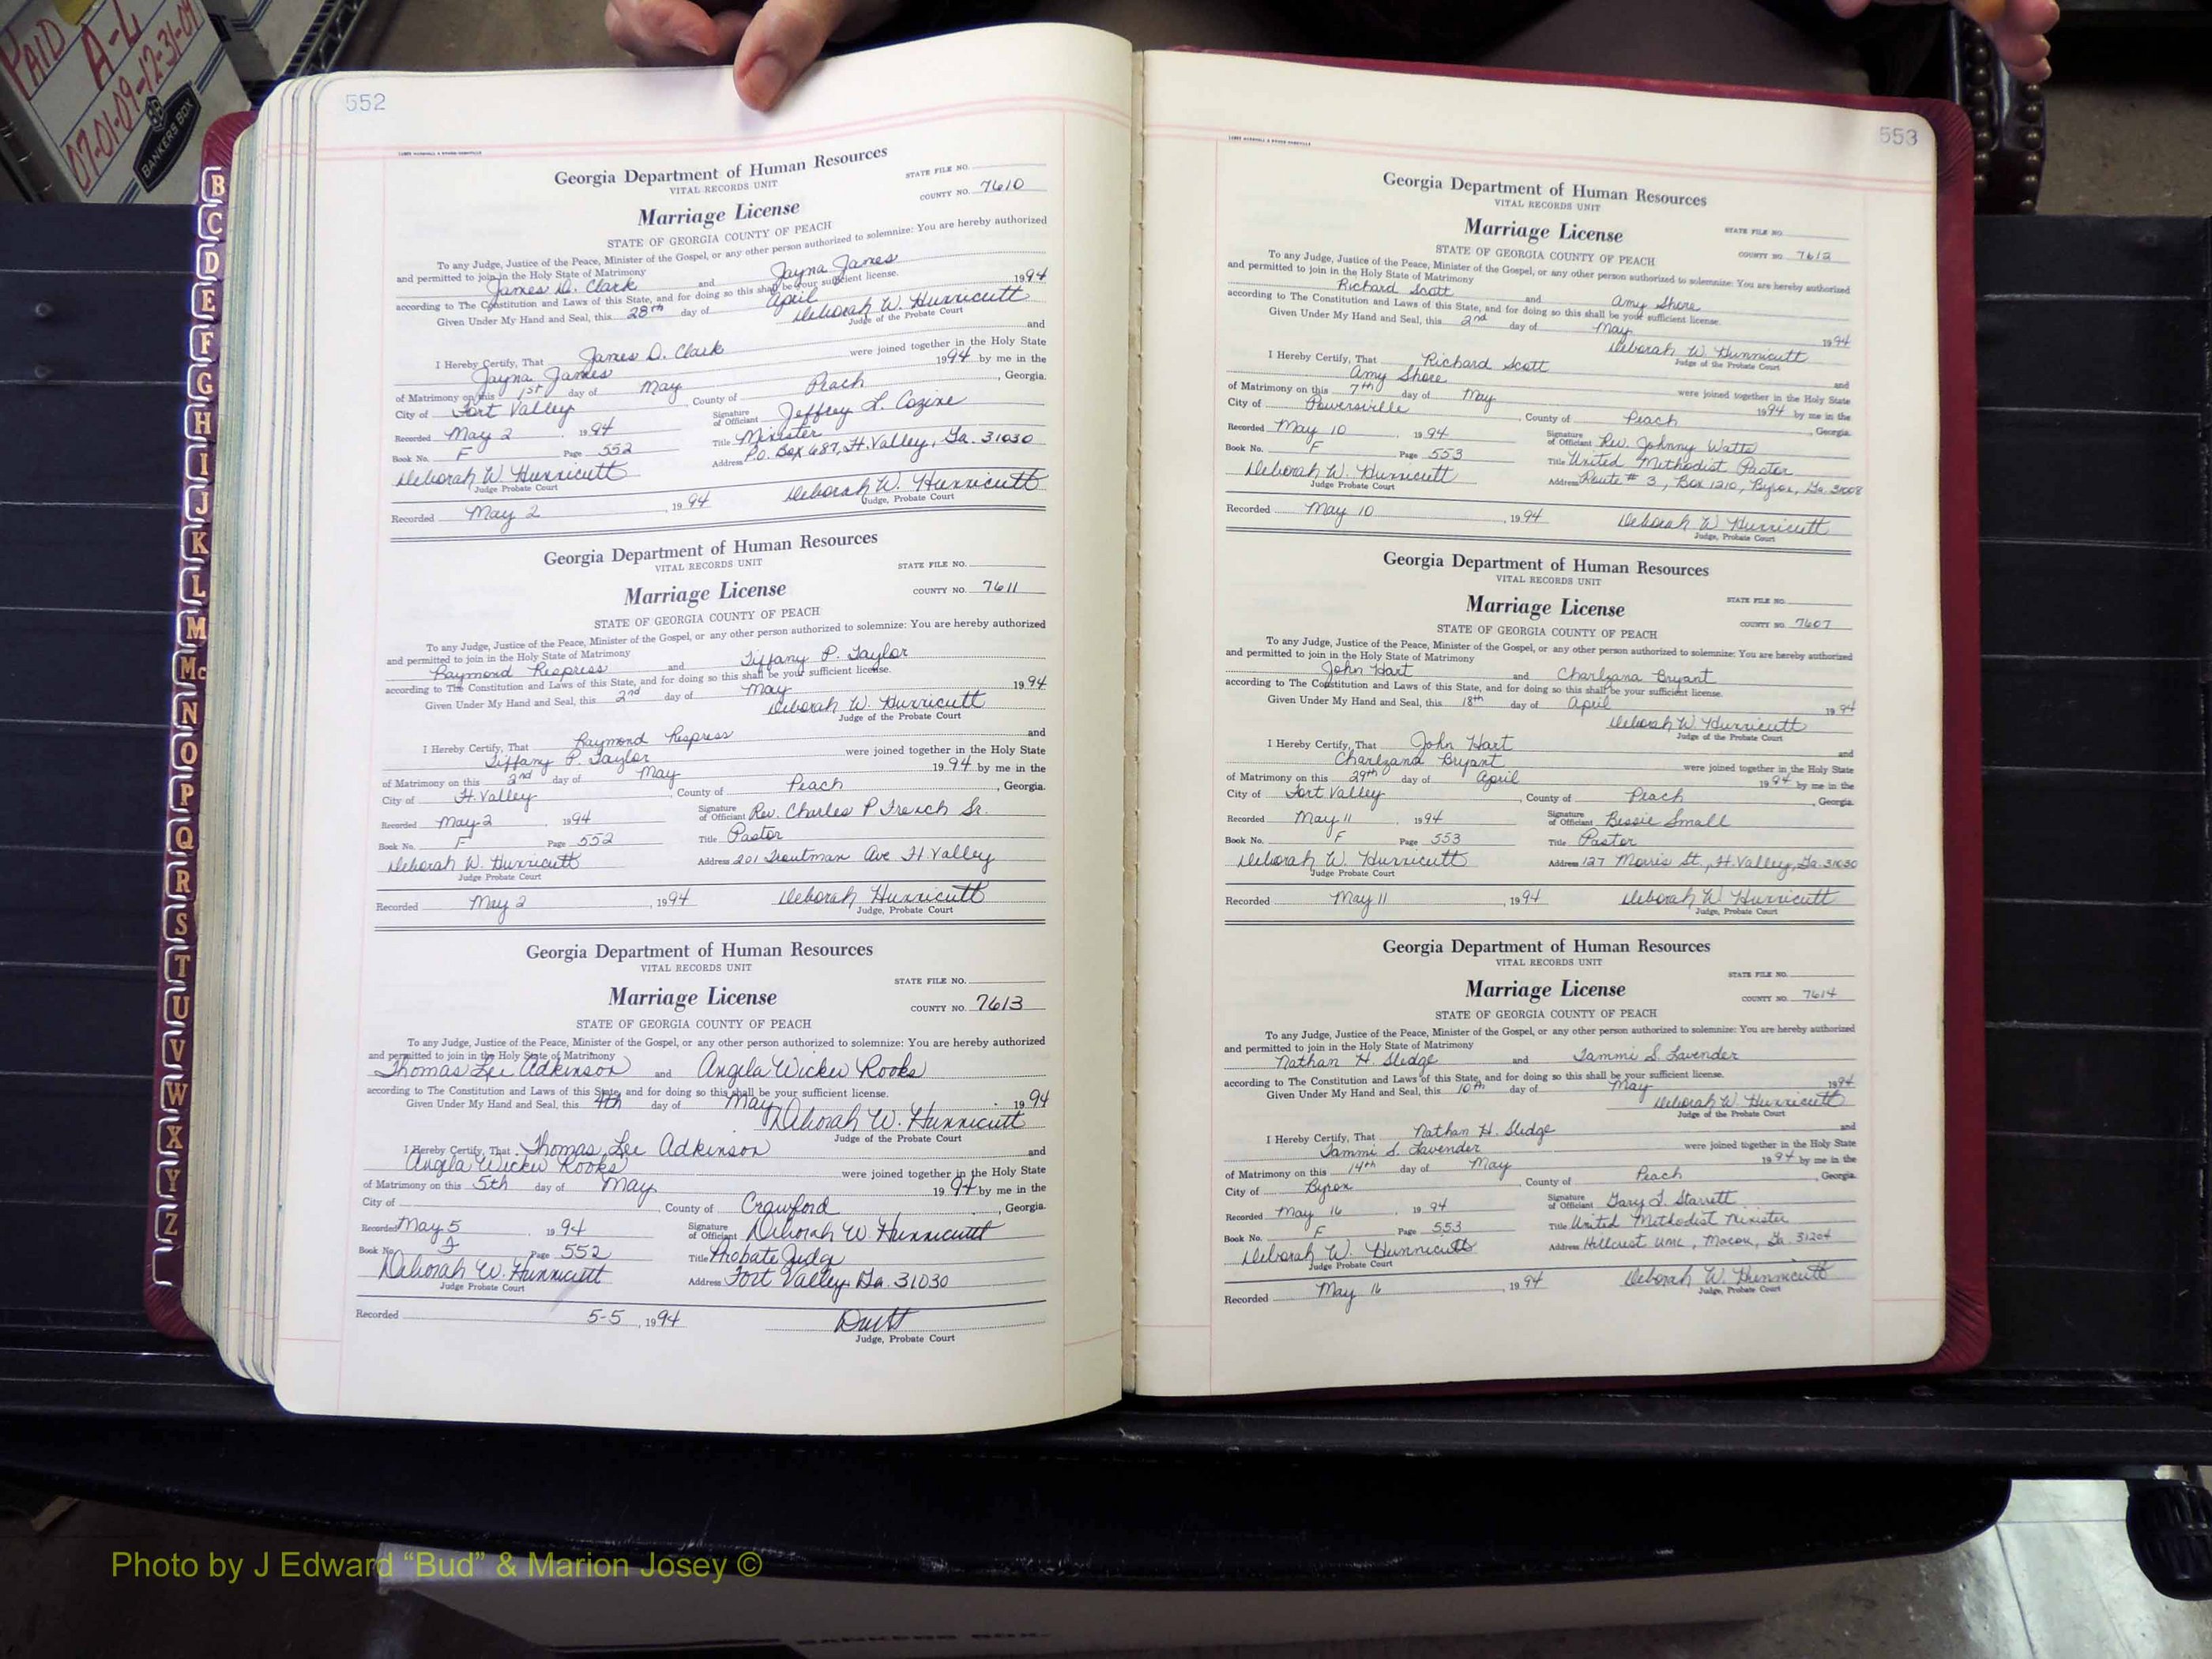 PAID
A-L
07-01-09-12-31-09
BANKERS BOX
B
C
D
E
F
G
H
I
J
K
L
M
Mc
N
O
P
Q
R
S
T
U
V
W
X
Y
Z
552
Georgia Department of Human Resources
VITAL RECORDS UNIT
STATE FILE NO.
COUNTY NO. 7610
Marriage License
STATE OF GEORGIA COUNTY OF PEACH
To any Judge, Justice of the Peace, Minister of the Gospel, or any other person authorized to solemnize: You are hereby authorized
and permitted to join in the Holy State of Matrimony
James D. Clark and Jayna James
according to The Constitution and Laws of this State, and for doing so this shall be your sufficient license.
Given Under My Hand and Seal, this 28th day of April 1994
Deborah W. Hunnicutt
Judge of the Probate Court
I Hereby Certify, That James D. Clark and
Jayna James were joined together in the Holy State
of Matrimony on this 1st day of May 1994 by me in the
City of Fort Valley, County of Peach, Georgia.
Recorded May 2, 1994 Signature of Officiant Jeffrey L. Cozine
Book No. F Page 552 Title Minister
Deborah W. Hunnicutt Address P.O. Box 687, Ft. Valley, Ga. 31030
Judge Probate Court
Recorded May 2, 1994 Deborah W. Hunnicutt
Judge, Probate Court
Georgia Department of Human Resources
VITAL RECORDS UNIT
STATE FILE NO.
COUNTY NO. 7611
Marriage License
STATE OF GEORGIA COUNTY OF PEACH
To any Judge, Justice of the Peace, Minister of the Gospel, or any other person authorized to solemnize: You are hereby authorized
and permitted to join in the Holy State of Matrimony
Raymond Respress and Tiffany P. Taylor
according to The Constitution and Laws of this State, and for doing so this shall be your sufficient license.
Given Under My Hand and Seal, this 2nd day of May 1994
Deborah W. Hunnicutt
Judge of the Probate Court
I Hereby Certify, That Raymond Respress and
Tiffany P. Taylor were joined together in the Holy State
of Matrimony on this 2nd day of May 1994 by me in the
City of Ft. Valley, County of Peach, Georgia.
Recorded May 2, 1994 Signature of Officiant Rev. Charles P French Sr.
Book No. F Page 552 Title Pastor
Deborah W. Hunnicutt Address 201 Troutman Ave Ft. Valley
Judge Probate Court
Recorded May 2, 1994 Deborah Hunnicutt
Judge, Probate Court
Georgia Department of Human Resources
VITAL RECORDS UNIT
STATE FILE NO.
COUNTY NO. 7613
Marriage License
STATE OF GEORGIA COUNTY OF PEACH
To any Judge, Justice of the Peace, Minister of the Gospel, or any other person authorized to solemnize: You are hereby authorized
and permitted to join in the Holy State of Matrimony
Thomas Lee Adkinson and Angela Wicker Rooks
according to The Constitution and Laws of this State and for doing so this shall be your sufficient license.
Given Under My Hand and Seal, this 4th day of May 1994
Deborah W. Hunnicutt
Judge of the Probate Court
I Hereby Certify, That Thomas Lee Adkinson and
Angela Wicker Rooks were joined together in the Holy State
of Matrimony on this 5th day of May 1994 by me in the
City of, County of Crawford, Georgia.
Recorded May 5 1994 Signature of Officiant Deborah W. Hunnicutt
Book No. F Page 552 Title Probate Judge
Deborah W. Hunnicutt Address Fort Valley Ga. 31030
Judge Probate Court
Recorded 5-5, 1994
Judge, Probate Court
553
Georgia Department of Human Resources
VITAL RECORDS UNIT
Marriage License
STATE FILE NO.
STATE OF GEORGIA COUNTY OF PEACH
COUNTY NO. 7612
To any Judge, Justice of the Peace, Minister of the Gospel, or any other person authorized to solemnize: You are hereby authorized
and permitted to join in the Holy State of Matrimony
Richard Scott and Amy Shore
according to The Constitution and Laws of this State, and for doing so this shall be your sufficient license.
Given Under My Hand and Seal, this 2nd day of May 1994
Deborah W. Hunnicutt
Judge of the Probate Court
I Hereby Certify, That Richard Scott and
Amy Shore were joined together in the Holy State
of Matrimony on this 7th day of May 1994 by me in the
City of Powersville, County of Peach, Georgia.
Recorded May 10, 1994 Signature of Officiant Rev. Johnny Watts
Book No. F Page 553 Title United Methodist Pastor
Deborah W. Hunnicutt Address Route # 3, Box 1210, Byron, Ga. 31008
Judge Probate Court
Recorded May 10, 1994 Deborah W Hunnicutt
Judge, Probate Court
Georgia Department of Human Resources
VITAL RECORDS UNIT
STATE FILE NO.
Marriage License
COUNTY NO. 7607
STATE OF GEORGIA COUNTY OF PEACH
To any Judge, Justice of the Peace, Minister of the Gospel, or any other person authorized to solemnize: You are hereby authorized
and permitted to join in the Holy State of Matrimony
John Hart and Charlzana Bryant
according to The Constitution and Laws of this State, and for doing so this shall be your sufficient license.
Given Under My Hand and Seal, this 18th day of April 1994
Deborah W. Hunnicutt
Judge of the Probate Court
I Hereby Certify, That John Hart and
Charlzana Bryant were joined together in the Holy State
of Matrimony on this 29th day of April 1994 by me in the
City of Fort Valley, County of Peach, Georgia.
Recorded May 11, 1994 Signature of Officiant Bessie Small
Book No. F Page 553 Title Pastor
Deborah W. Hunnicutt Address 127 Morris St., Ft. Valley, Ga. 31030
Judge Probate Court
Recorded May 11, 1994 Deborah W Hunnicutt
Judge, Probate Court
Georgia Department of Human Resources
VITAL RECORDS UNIT
STATE FILE NO.
Marriage License
COUNTY NO. 7614
STATE OF GEORGIA COUNTY OF PEACH
To any Judge, Justice of the Peace, Minister of the Gospel, or any other person authorized to solemnize: You are hereby authorized
and permitted to join in the Holy State of Matrimony
Nathan H. Sledge and Tammi S. Lavender
according to The Constitution and Laws of this State, and for doing so this shall be your sufficient license.
Given Under My Hand and Seal, this 10th day of May 1994
Deborah W. Hunnicutt
Judge of the Probate Court
I Hereby Certify, That Nathan H. Sledge and
Tammi S. Lavender were joined together in the Holy State
of Matrimony on this 14th day of May 1994 by me in the
City of Byron, County of Peach, Georgia.
Recorded May 16, 1994 Signature of Officiant Gary T. Starrett
Book No. F Page 553 Title United Methodist Minister
Deborah W. Hunnicutt Address Hillcrest UMC, Macon, Ga 31204
Judge Probate Court
Recorded May 16, 1994 Deborah W. Hunnicutt
Judge, Probate Court
Photo by J Edward “Bud” & Marion Josey ©